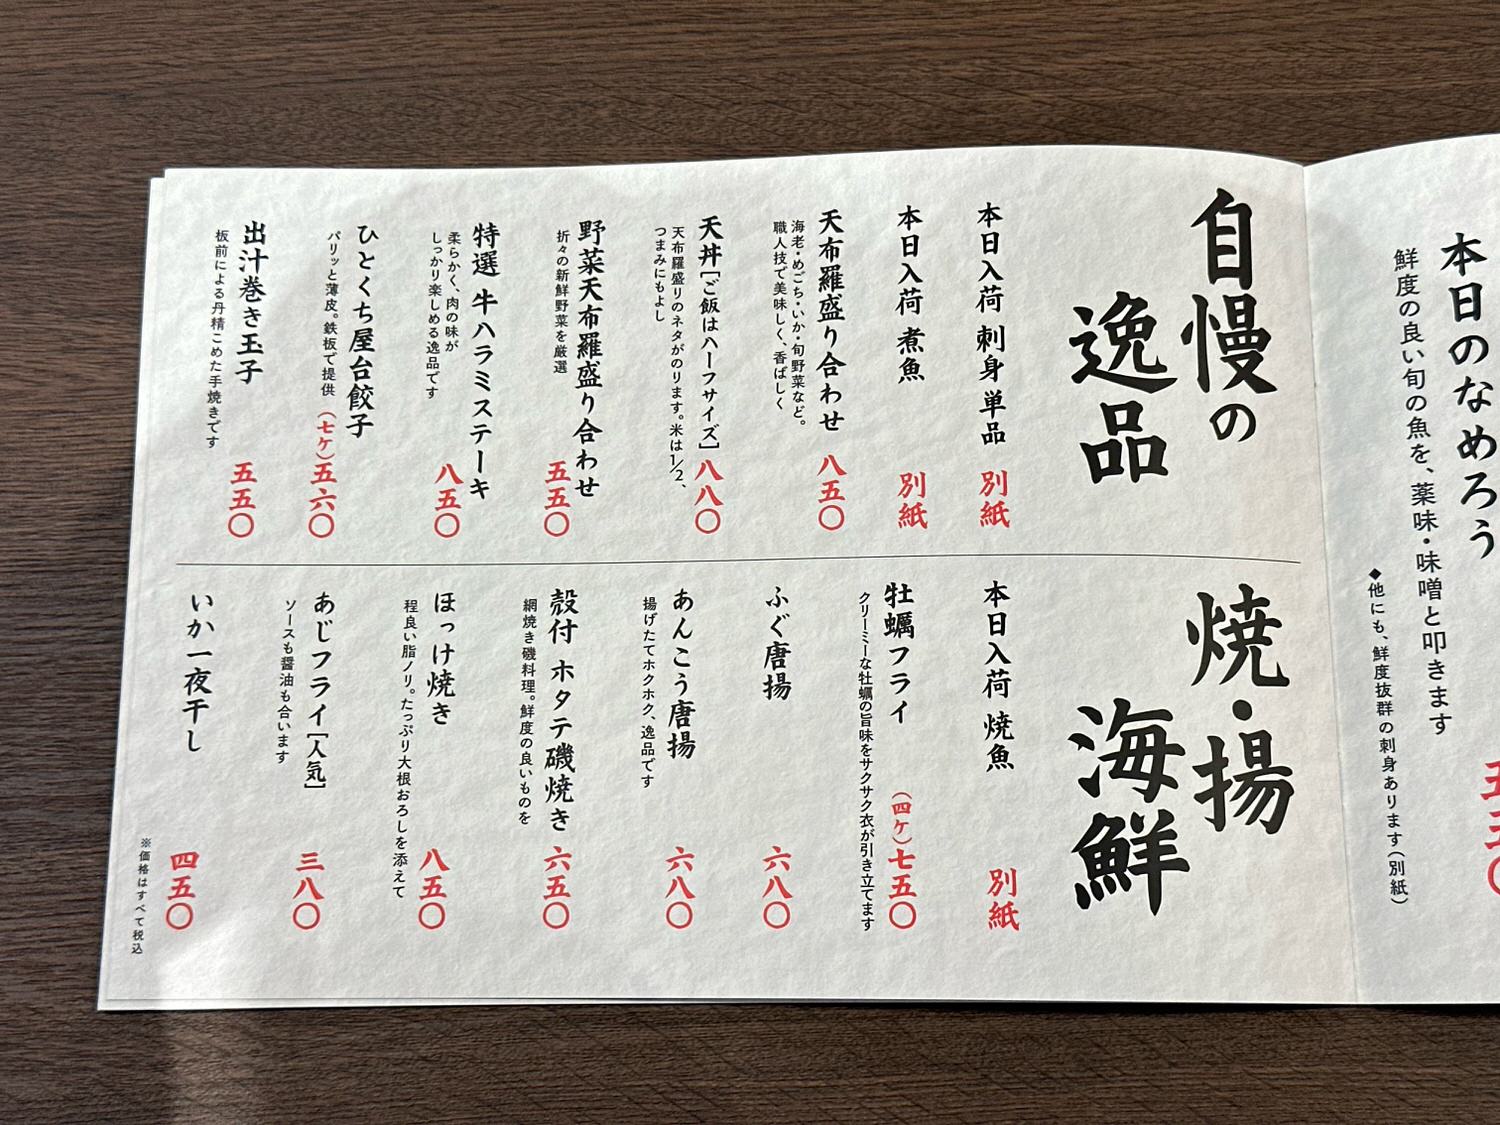 本日のなめろう
鮮度の良い旬の魚を、薬味・味噌と叩きます
◆他にも、鮮度抜群の刺身あります（別紙）
自慢の
逸品
本日入荷 刺身 単品 別紙
本日入荷 煮魚 別紙
天布羅盛り合わせ 八五〇
海老・めごち・いか・旬野菜など。
職人技で美味しく、香ばしく
天丼［ご飯はハーフサイズ］ 八八〇
天布羅盛りのネタがのります。米は1/2、
つまみにもよし
野菜天布羅盛り合わせ 五五〇
折々の新鮮野菜を厳選
特選 牛ハラミステーキ 八五〇
柔らかく、肉の味が
しっかり楽しめる逸品です
ひとくち屋台餃子 （七ケ）五六〇
パリッと薄皮。鉄板で提供
出汁巻き玉子 五五〇
板前による丹精こめた手焼きです
焼・揚
海鮮
本日入荷 焼魚 別紙
牡蠣フライ （四ケ）七五〇
クリーミーな牡蠣の旨味をサクサク衣が引き立てます
ふぐ唐揚 六八〇
あんこう唐揚 六八〇
揚げたてホクホク、逸品です
殻付 ホタテ磯焼き 六五〇
網焼き磯料理。鮮度の良いものを
ほっけ焼き 八五〇
程良い脂ノリ。たっぷり大根おろしを添えて
あじフライ［人気］ 三八〇
ソースも醤油も合います
いか一夜干し 四五〇
※価格はすべて税込